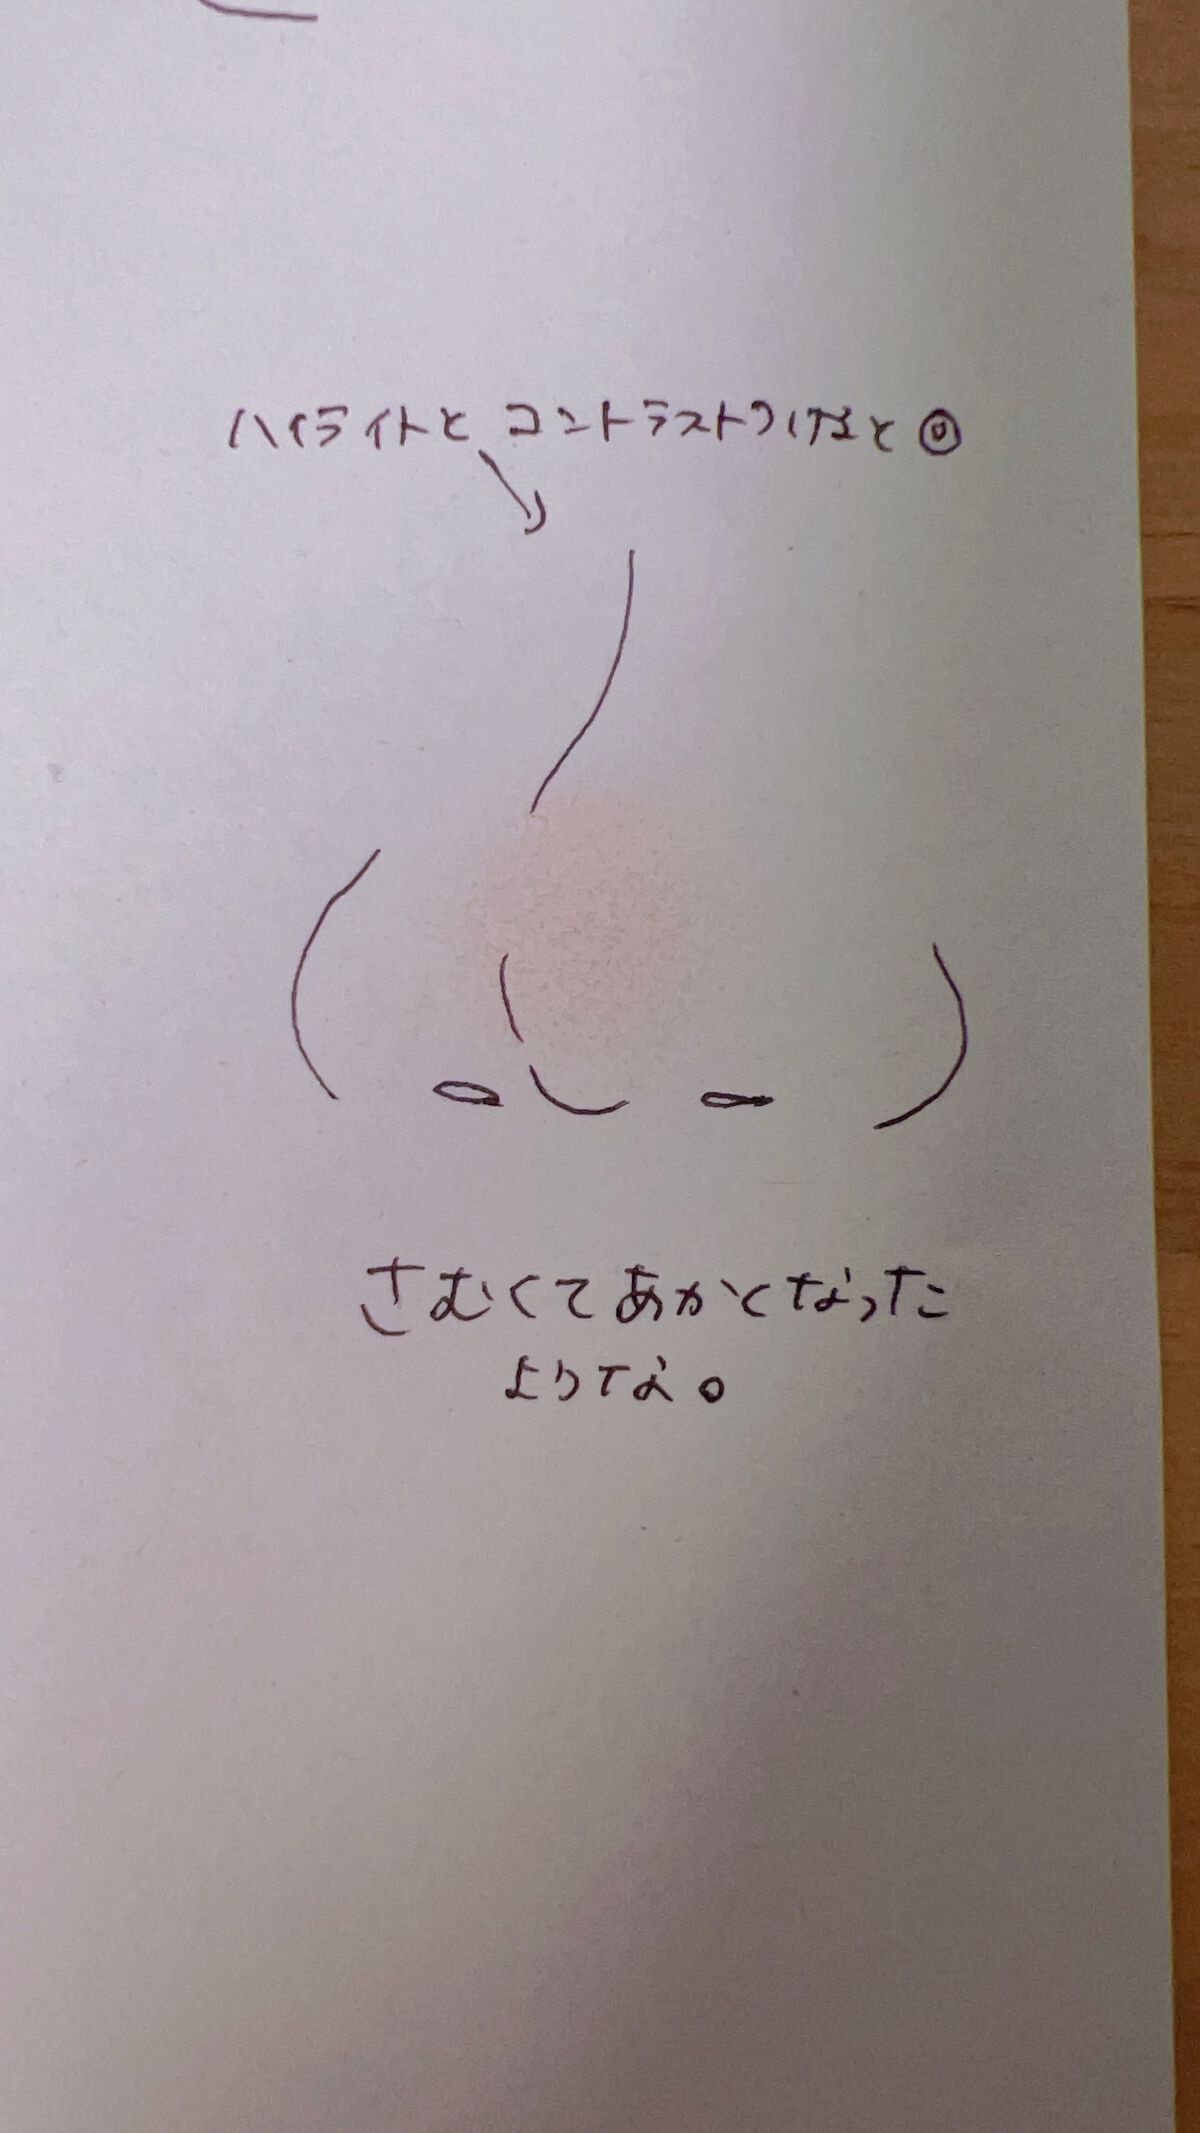 ハイライトと コントラストつけると◎
さむくてあかくなった
ような。